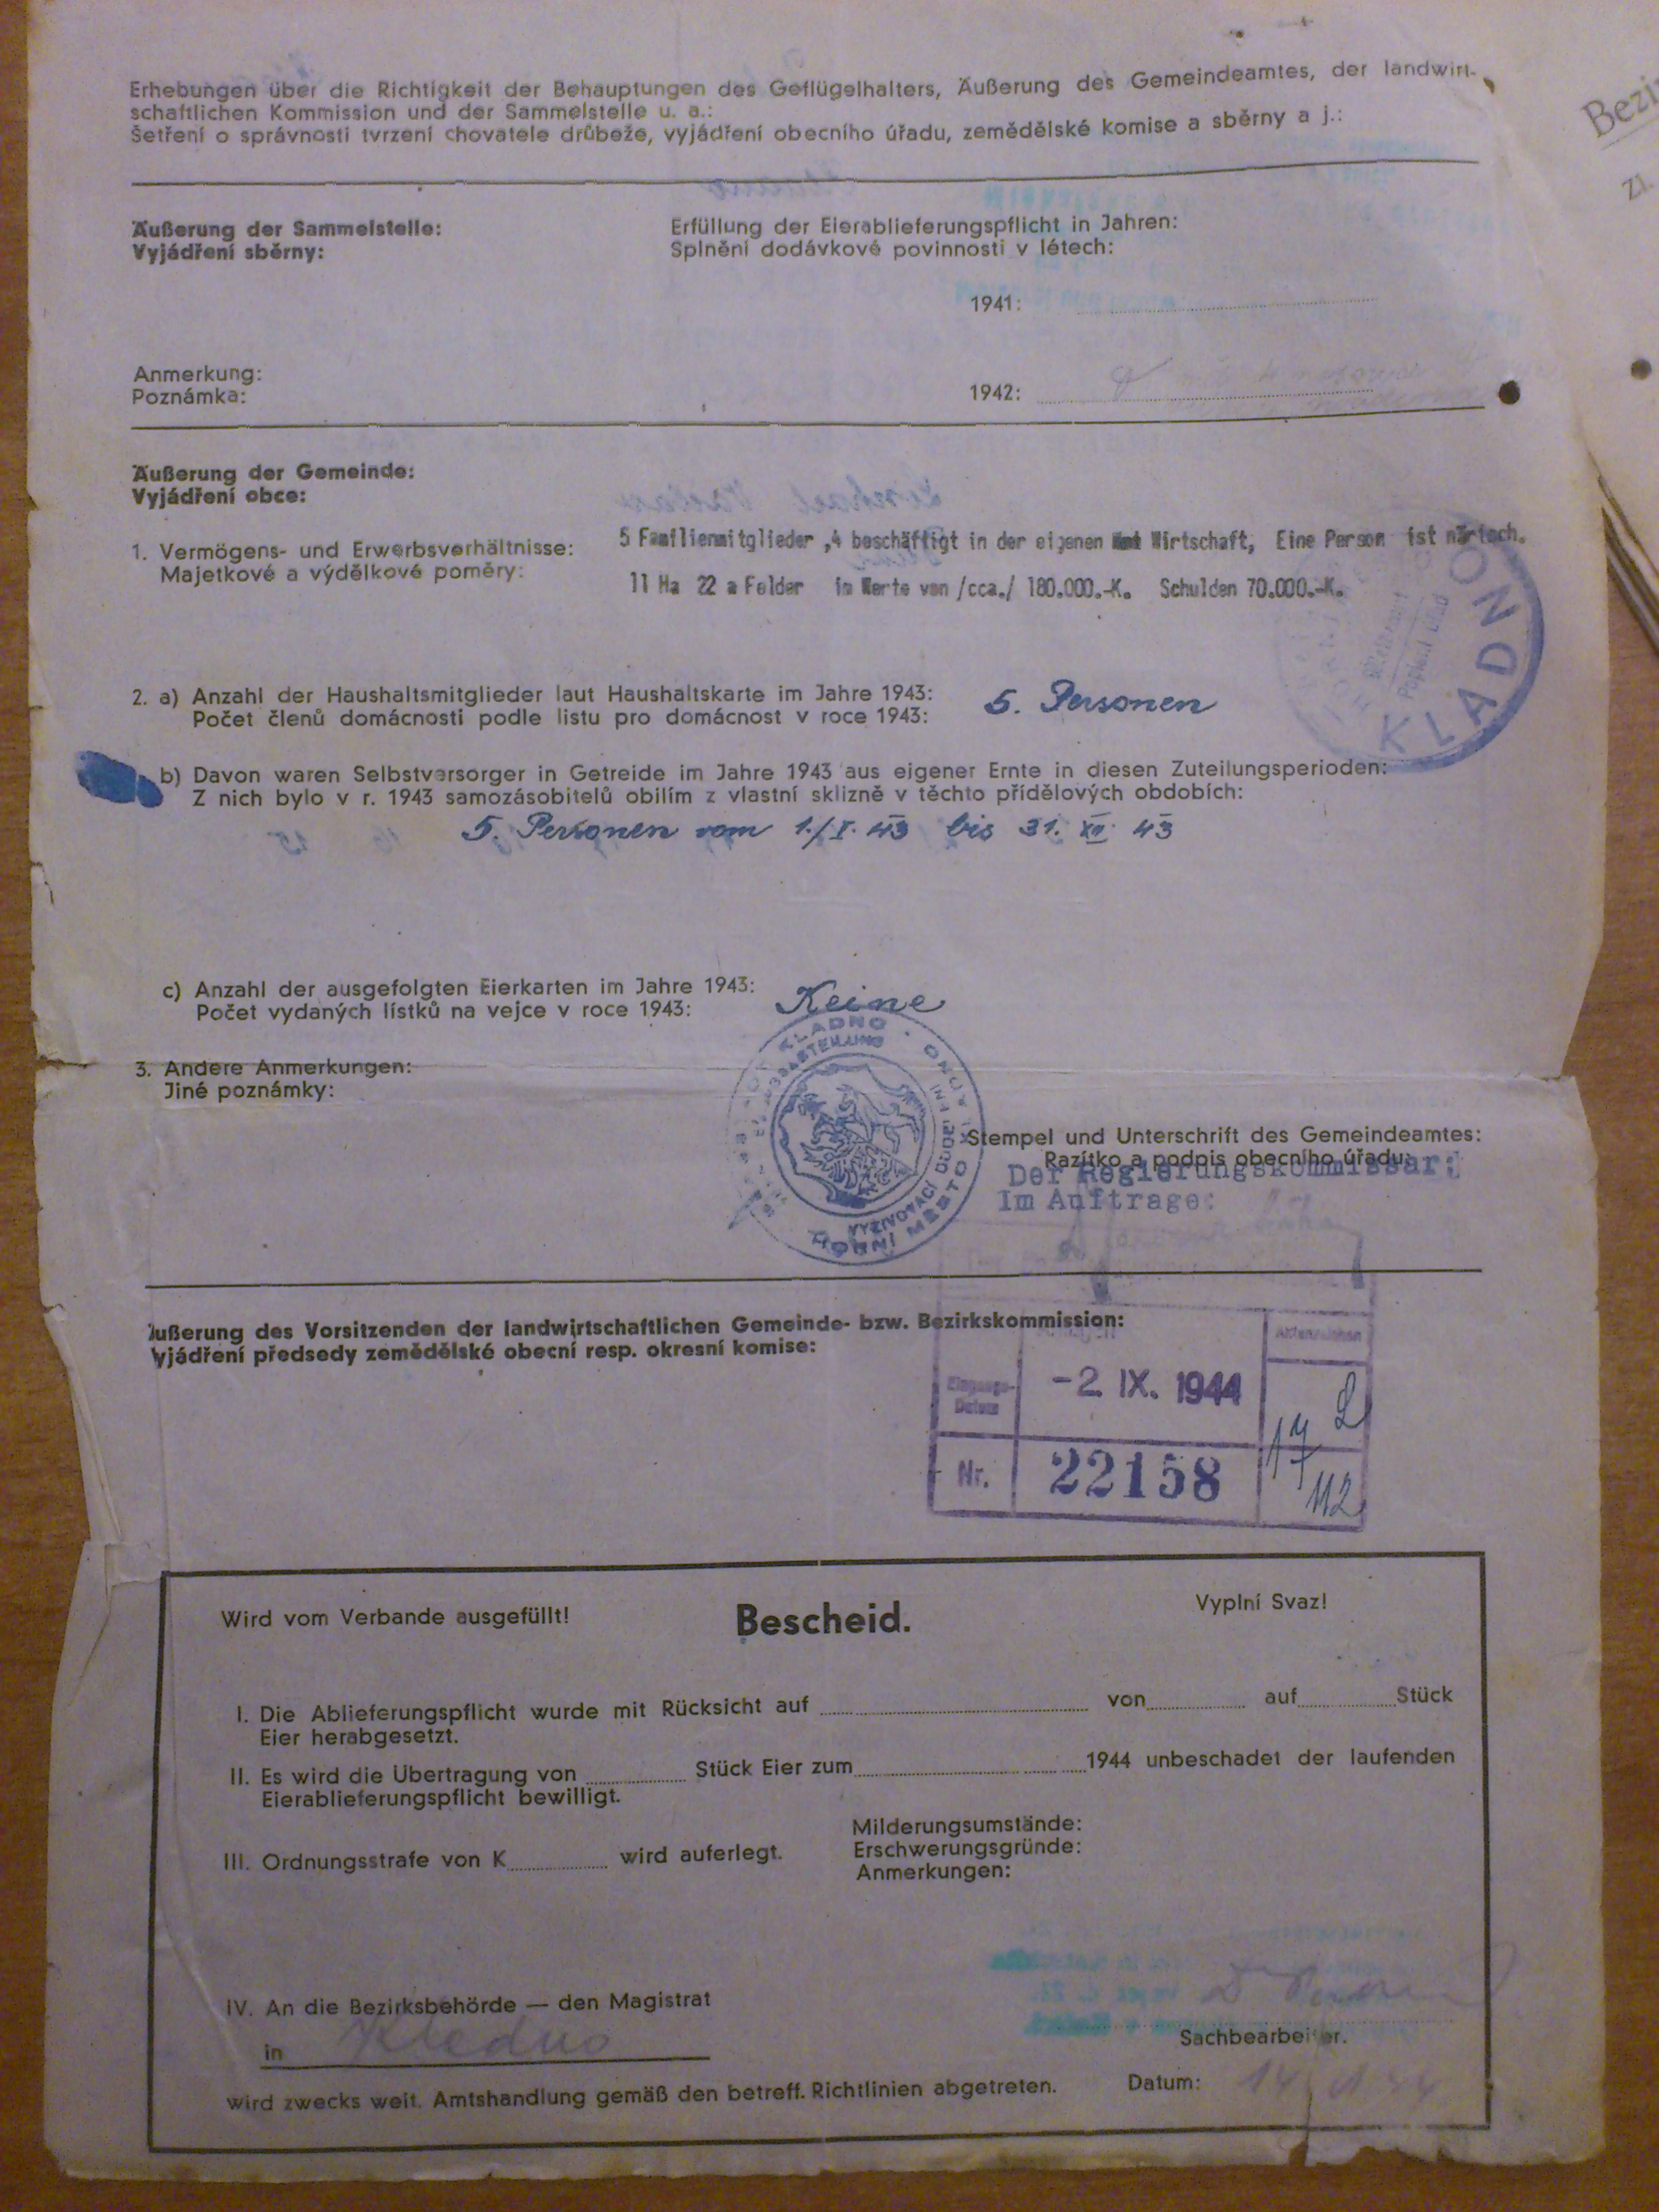 Erhebungen über die Richtigkeit der Behauptungen des Geflügelhalters, Äußerung des Gemeindeamtes, der landwirt-
schaftlichen Kommission und der Sammelstelle u. a.:
Šetření o správnosti tvrzení chovatele drůbeže, vyjádření obecního úřadu, zemědělské komise a sběrny a j.:
Äußerung der Sammelstelle:
Vyjádření sběrny:
Erfüllung der Eierablieferungspflicht in Jahren:
Splnění dodávkové povinnosti v létech:
1941:
Anmerkung:
Poznámka:
1942:
Äußerung der Gemeinde:
Vyjádření obce:
1. Vermögens- und Erwerbsverhältnisse:
Majetkové a výdělkové poměry:
5 Familienmitglieder ,4 beschäftigt in der eigenen Wirtschaft, Eine Person ist närisch.
11 Ha 22 a Felder im Werte von /cca./ 180.000.-K. Schulden 70.000.-K.
KLADNO
2. a) Anzahl der Haushaltsmitglieder laut Haushaltskarte im Jahre 1943: 5. Personen
Počet členů domácnosti podle listu pro domácnost v roce 1943:
b) Davon waren Selbstversorger in Getreide im Jahre 1943 aus eigener Ernte in diesen Zuteilungsperioden:
Z nich bylo v r. 1943 samozásobitelů obilím z vlastní sklizně v těchto přídělových obdobích:
5. Personen vom 1./I. 43 bis 31. XII. 43
c) Anzahl der ausgefolgten Eierkarten im Jahre 1943: Keine
Počet vydaných lístků na vejce v roce 1943:
3. Andere Anmerkungen:
Jiné poznámky:
KLADNO
VYŽIVOVACÍ ODDĚLENÍ
HORNÍ MĚSTO KLADNO
Stempel und Unterschrift des Gemeindeamtes:
Razítko a podpis obecního úřadu:
Der Regierungskommissar:
Im Auftrage:
Äußerung des Vorsitzenden der landwirtschaftlichen Gemeinde- bzw. Bezirkskommission:
Vyjádření předsedy zemědělské obecní resp. okresní komise:
Aktenzeichen
Eingangs-
Datum
-2. IX. 1944
Nr. 22158
112
Wird vom Verbande ausgefüllt!
Bescheid.
Vyplní Svaz!
I. Die Ablieferungspflicht wurde mit Rücksicht auf von auf Stück
Eier herabgesetzt.
II. Es wird die Übertragung von Stück Eier zum 1944 unbeschadet der laufenden
Eierablieferungspflicht bewilligt.
III. Ordnungsstrafe von K wird auferlegt.
Milderungsumstände:
Erschwerungsgründe:
Anmerkungen:
IV. An die Bezirksbehörde — den Magistrat
in Kladno
Sachbearbeiter.
wird zwecks weit. Amtshandlung gemäß den betreff. Richtlinien abgetreten.
Datum: